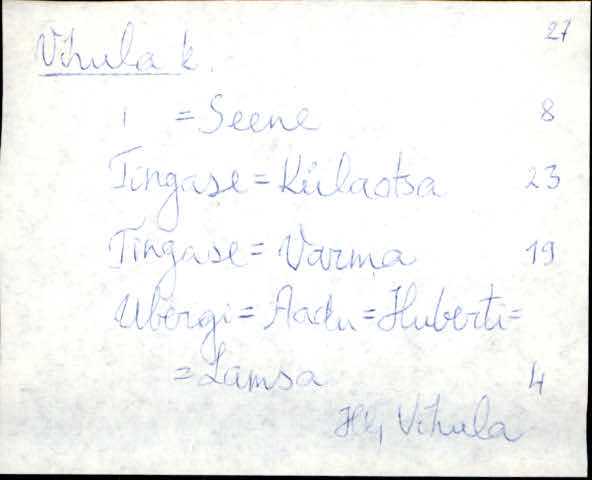 27
Vihula k.
= Seene 8
Tingase = Külaotsa 23
Tingase = Varma 19
Ubergi = Aadu = Huberti =
= Lamsa 4
Vihula